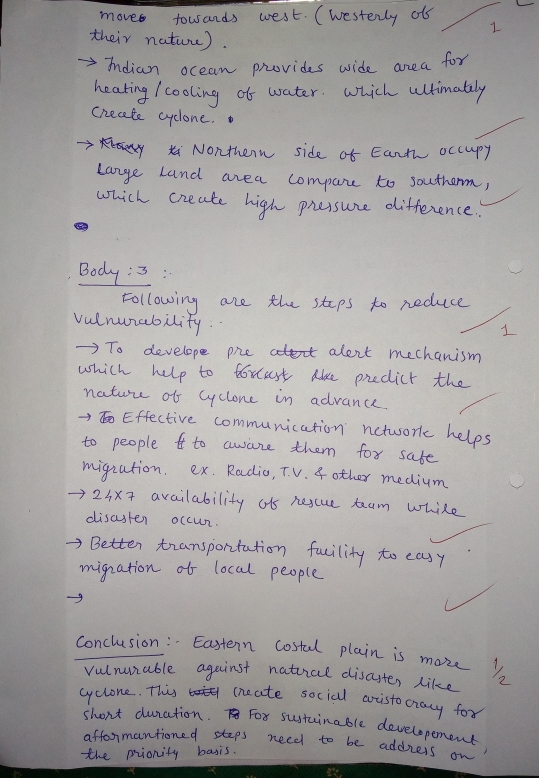 moves towards west. (Westerly of
their nature).
1
→ Indian ocean provides wide area for
heating/cooling of water. which ultimately
create cyclone.
→ Northern side of Earth occupy
Large Land area compare to southern,
which create high pressure difference.
Body : 3 :-
Following are the steps to reduce
vulnurability :-
1
→ To develope pre alert mechanism
which help to predict the
nature of cyclone in advance.
→ Effective communication network helps
to people to aware them for safe
migration. ex. Radio, T.V. & other medium
→ 24x7 availability of rescue team while
disaster occur.
→ Better transportation facility to easy
migration of local people
→
Conclusion :- Eastern costal plain is more
vulnurable against natural disaster like
1/2
cyclone. This create social aristocracy for
short duration. For sustainable developement,
afformantioned steps need to be address on
the priority basis.